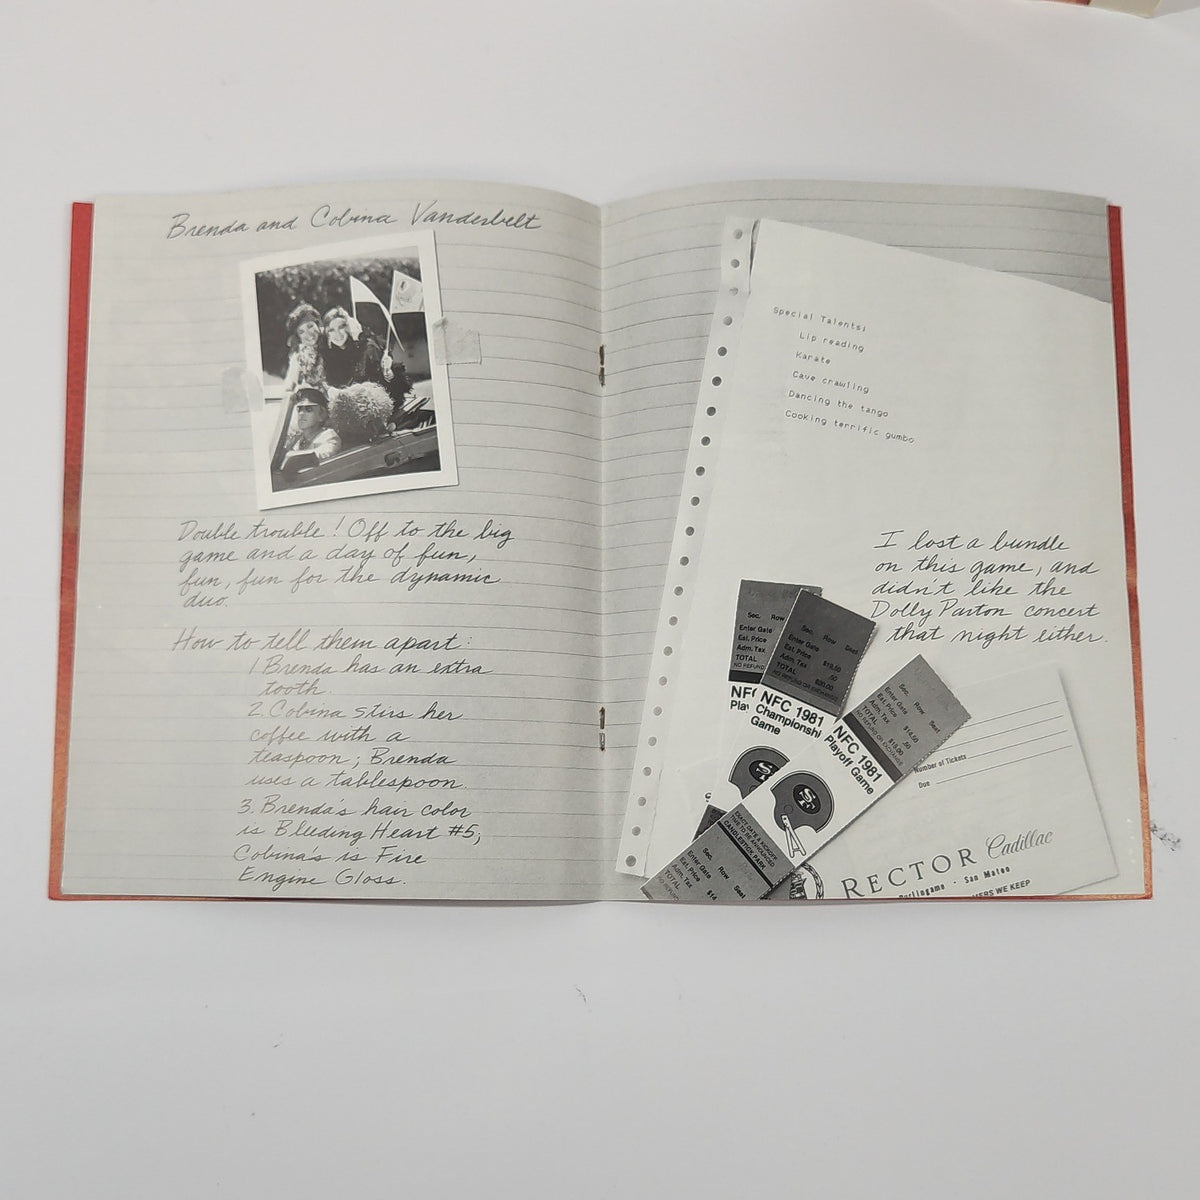 Brenda and Cobina Vanderbelt
Double trouble! Off to the big
game and a day of fun,
fun, fun for the dynamic
duo.
How to tell them apart:
1. Brenda has an extra
tooth.
2. Cobina stirs her
coffee with a
teaspoon; Brenda
uses a tablespoon.
3. Brenda's hair color
is Bleeding Heart #5;
Cobina's is Fire
Engine Gloss.
Special Talents:
Lip reading
Karate
Cave crawling
Dancing the tango
Cooking terrific gumbo
I lost a bundle
on this game, and
didn't like the
Dolly Parton concert
that night either.
Sec. Row
Enter Gate
Est. Price
Adm. Tax
TOTAL
NO REFUND
NFC
Play
Sec. Row Seat
Enter Gate
Est. Price $19.50
Adm. Tax .50
TOTAL $20.00
NO REFUND OR EXCHANGE
NFC 1981
Championshi
Game
SF
Sec. Row Seat
Enter Gate
Est. Price $14.50
Adm. Tax .50
TOTAL $15.00
NO REFUND OR EXCHANGE
NFC 1981
Playoff Game
SF
EXACT DATE & KICKOFF
TIME TO BE ANNOUNCED
CANDLESTICK PARK
Sec. Row Seat
Enter Gate
Est. Price $14
Adm. Tax
TOTAL
Number of Tickets
Due
RECTOR Cadillac
Burlingame · San Mateo
ERS WE KEEP